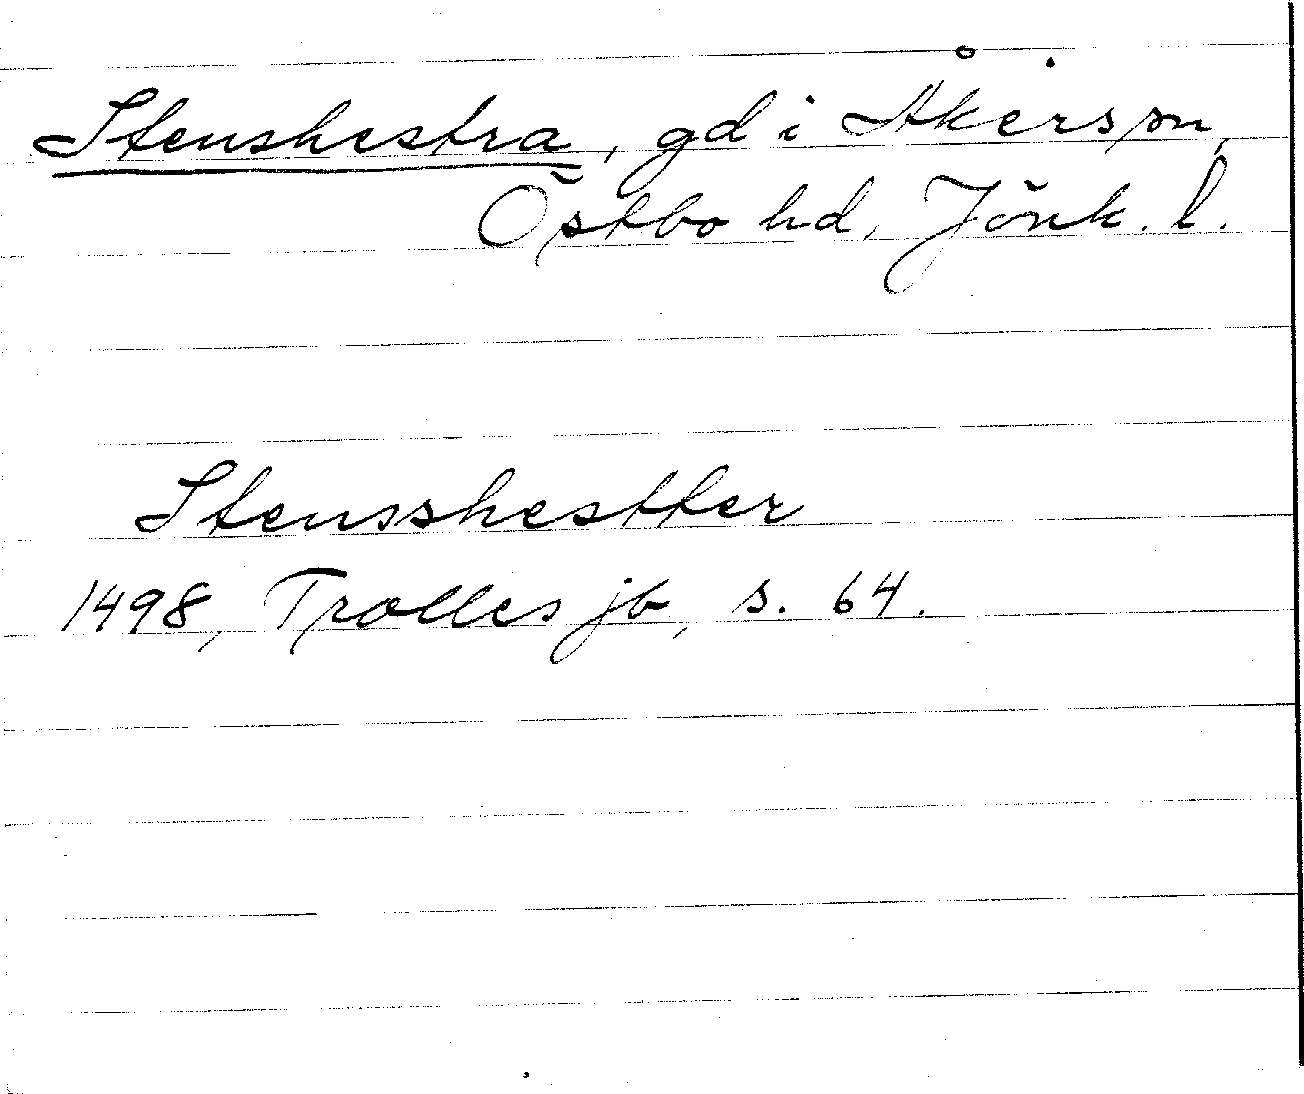 Stenshestra, gd i Åkers sn,
Östbo hd, Jönk. l.
Stensshestter
1498, Trolles jb, s. 64.